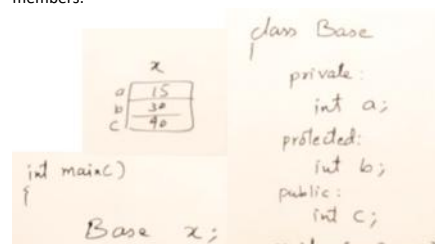 members.
x
a 15
b 30
c 40
int main()
{
Base x;
class Base
{
private:
int a;
protected:
int b;
public:
int c;